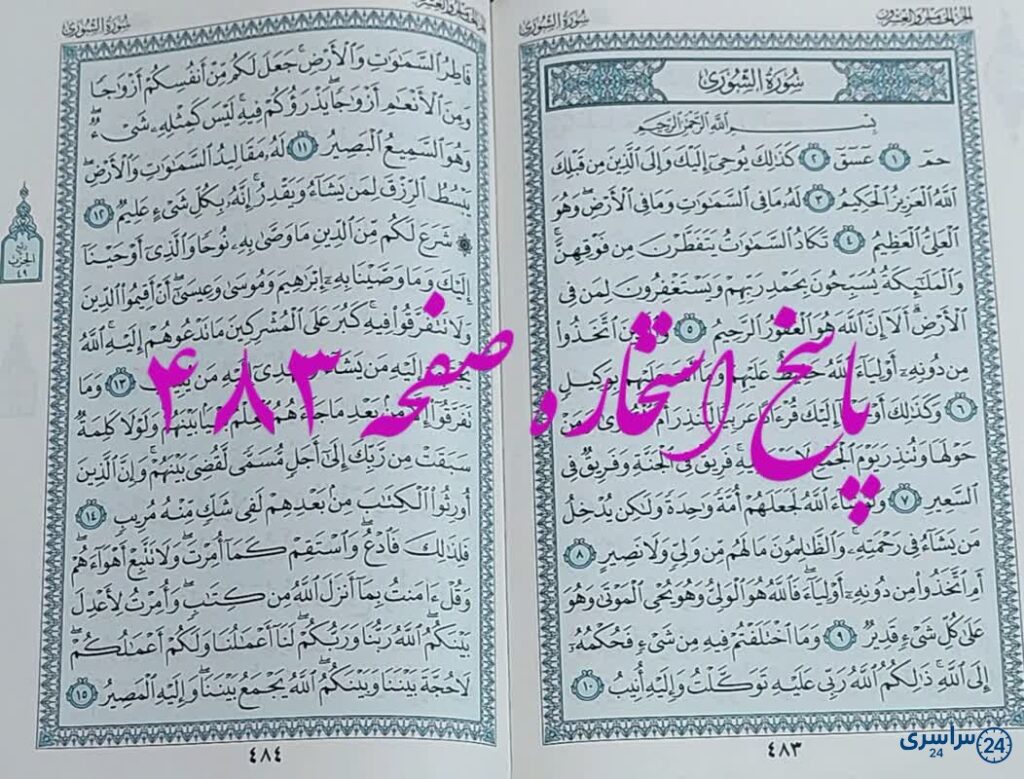 الجزء الخامس والعشرون
سورة الشورى
سُورَةُ الشُّورَىٰ
بِسْمِ اللَّهِ الرَّحْمَٰنِ الرَّحِيمِ
حمٓ ١ عٓسٓقٓ ٢ كَذَٰلِكَ يُوحِيٓ إِلَيْكَ وَإِلَى الَّذِينَ مِن قَبْلِكَ
اللَّهُ الْعَزِيزُ الْحَكِيمُ ٣ لَهُۥ مَا فِي السَّمَٰوَٰتِ وَمَا فِي الْأَرْضِ وَهُوَ
الْعَلِيُّ الْعَظِيمُ ٤ تَكَادُ السَّمَٰوَٰتُ يَتَفَطَّرْنَ مِن فَوْقِهِنَّ
وَالْمَلَٰٓئِكَةُ يُسَبِّحُونَ بِحَمْدِ رَبِّهِمْ وَيَسْتَغْفِرُونَ لِمَن فِي
الْأَرْضِ أَلَآ إِنَّ اللَّهَ هُوَ الْغَفُورُ الرَّحِيمُ ٥ اتَّخَذُوا
مِن دُونِهِۦٓ أَوْلِيَآءَ اللَّهُ حَفِيظٌ عَلَيْهِمْ وَمَآ عَلَيْهِم بِوَكِيلٍ
٦ وَكَذَٰلِكَ إِلَيْكَ قُرْءَانًا عَرَبِيًّا لِّتُنذِرَ أُمَّ وَمَنْ
حَوْلَهَا وَتُنذِرَ يَوْمَ الْجَمْعِ لَا فِيهِ فَرِيقٌ فِي الْجَنَّةِ وَفَرِيقٌ فِي
السَّعِيرِ ٧ وَلَوْ شَآءَ اللَّهُ لَجَعَلَهُمْ أُمَّةً وَٰحِدَةً وَلَٰكِن يُدْخِلُ
مَن يَشَآءُ فِي رَحْمَتِهِۦ وَالظَّٰلِمُونَ مَا لَهُم مِّن وَلِيٍّ وَلَا نَصِيرٍ ٨
أَمِ اتَّخَذُوا مِن دُونِهِۦٓ أَوْلِيَآءَ فَاللَّهُ هُوَ الْوَلِيُّ وَهُوَ يُحْيِ الْمَوْتَىٰ وَهُوَ
عَلَىٰ كُلِّ شَيْءٍ قَدِيرٌ ٩ وَمَا اخْتَلَفْتُمْ فِيهِ مِن شَيْءٍ فَحُكْمُهُۥٓ
إِلَى اللَّهِ ذَٰلِكُمُ اللَّهُ رَبِّي عَلَيْهِ تَوَكَّلْتُ وَإِلَيْهِ أُنِيبُ ١٠
٤٨٣
سورة الشورى
فَاطِرُ السَّمَٰوَٰتِ وَالْأَرْضِ جَعَلَ لَكُم مِّنْ أَنفُسِكُمْ أَزْوَٰجًا
وَمِنَ الْأَنْعَٰمِ أَزْوَٰجًا يَذْرَؤُكُمْ فِيهِ لَيْسَ كَمِثْلِهِۦ شَيْءٌ
وَهُوَ السَّمِيعُ الْبَصِيرُ ١١ لَهُۥ مَقَالِيدُ السَّمَٰوَٰتِ وَالْأَرْضِ
يَبْسُطُ الرِّزْقَ لِمَن يَشَآءُ وَيَقْدِرُ إِنَّهُۥ بِكُلِّ شَيْءٍ عَلِيمٌ ١٢
شَرَعَ لَكُم مِّنَ الدِّينِ مَا وَصَّىٰ بِهِۦ نُوحًا وَالَّذِيٓ أَوْحَيْنَآ
إِلَيْكَ وَمَا وَصَّيْنَا بِهِۦٓ إِبْرَٰهِيمَ وَمُوسَىٰ وَعِيسَىٰٓ أَنْ أَقِيمُوا الدِّينَ
وَلَا تَتَفَرَّقُوا فِيهِ كَبُرَ عَلَى الْمُشْرِكِينَ مَا تَدْعُوهُمْ إِلَيْهِ اللَّهُ
إِلَيْهِ مَن يَشَآءُ وَيَهْدِيٓ إِلَيْهِ مَن ١٣ وَمَا
تَفَرَّقُوٓا مِنۢ بَعْدِ مَا جَآءَهُمُ الْعِلْمُ بَيْنَهُمْ وَلَوْلَا كَلِمَةٌ
سَبَقَتْ مِن رَّبِّكَ إِلَىٰٓ أَجَلٍ مُّسَمًّى لَّقُضِيَ بَيْنَهُمْ وَإِنَّ الَّذِينَ
أُورِثُوا الْكِتَٰبَ مِنۢ بَعْدِهِمْ لَفِي شَكٍّ مِّنْهُ مُرِيبٍ ١٤
فَلِذَٰلِكَ فَادْعُ وَاسْتَقِمْ كَمَآ أُمِرْتَ وَلَا تَتَّبِعْ أَهْوَآءَهُمْ
وَقُلْ ءَامَنتُ بِمَآ أَنزَلَ اللَّهُ مِن كِتَٰبٍ وَأُمِرْتُ لِأَعْدِلَ
بَيْنَكُمُ اللَّهُ رَبُّنَا وَرَبُّكُمْ لَنَآ أَعْمَٰلُنَا وَلَكُمْ أَعْمَٰلُكُمْ
لَا حُجَّةَ بَيْنَنَا وَبَيْنَكُمُ اللَّهُ يَجْمَعُ بَيْنَنَا وَإِلَيْهِ الْمَصِيرُ ١٥
٤٨٤
ربع
الحزب
٤٩
پاسخ استخاره صفحه ۴۸۳
سراسری 24
24